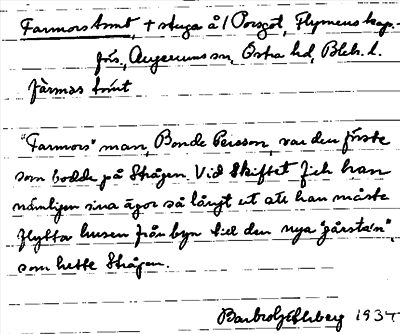 Farmors tomt, + stuga å / Porsgöl, Flymens kap.-
förs., Augerums sn, Östra hd, Blek. l.
fàrmos tomt
"Farmors" man, Bonde Persson, var den förste
som bodde på Strågen. Vid skiftet fick han
nämligen sina ägor så långt ut att han måste
flytta husen från byn till den nya "gårsta'n",
som hette Strågen.
1934